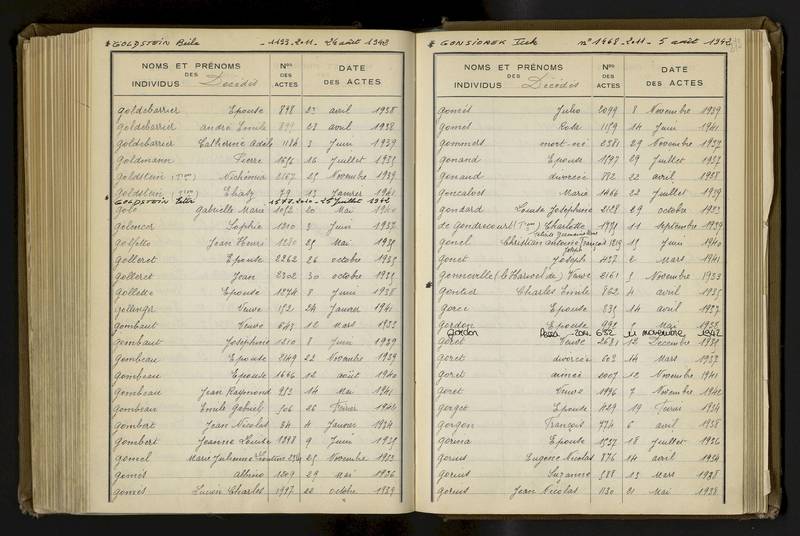 * GOLDSTEIN Beila - 1193 - 2011 - 26 août 1942
NOMS ET PRÉNOMS
DES Décédés
INDIVIDUS
Nos
DES
ACTES
DATE
DES ACTES
Goldebarrier Epouse 848 23 avril 1938
Goldebarrier André Emile 23 avril 1938
Goldebarrier Catherine Adèle 1184 3 Juin 1939
Goldmann Pierre 16 Juillet 1935
Goldstein 2167 25 Novembre 1939
Goldstein 79 13 Janvier 1941
GOLDSTEIN 25 Juillet 1942
Golo Gabrielle Marie 1052 20 Mai 1940
Sophie 1210 3 Juin 1937
Golfetto Jean Henri 1280 25 Mai 1935
Golleret Epouse 2262 26 octobre 1935
Golleret Jean 2302 30 octobre 1935
Gollette Epouse 1274 8 Juin 1938
Veuve 152 24 Janvier 1941
Gombaut Veuve 643 12 Mars 1933
Gombaut Joséphine 1210 8 Juin 1939
Gombeau Epouse 2149 22 Novembre 1939
Gombeau Epouse 1646 12 août 1940
Gombeau Jean Raymond 953 14 Mai 1941
Gombeau Emile Gabriel 506 26 Février 1944
Gombert Jean Nicolas 84 4 Janvier 1934
Gombert Jeanne Louise 1298 9 Juin 1935
Gomel Marie Julienne 25 Novembre 1933
Gomès Albino 1209 29 Mai 1936
Gomès Lucien Charles 1997 22 octobre 1939
* GONSIOREK Icek n° 1468 - 2011 - 5 août 1942
NOMS ET PRÉNOMS
DES Décédés
INDIVIDUS
Nos
DES
ACTES
DATE
DES ACTES
Gomès Julio 2099 8 Novembre 1939
Gomel Rose 1159 14 Juin 1941
Gommers mort-né 2381 29 Novembre 1937
Gonand Epouse 1547 29 Juillet 1937
Gonaud divorcée 882 22 avril 1938
Goncalves Marie 1466 22 Juillet 1939
Gondard Louise Joséphine 2128 29 octobre 1933
de Gondrecourt Charlotte 1775 11 Septembre 1939
Gonel Christian Antoine François 1219 15 Juin 1940
Gonet Joseph 437 2 Mars 1941
Gonneville (le Harivel de) Veuve 2161 5 Novembre 1933
* Gontier Charles Emile 862 4 avril 1935
Gorce Epouse 835 14 avril 1937
Gordon Epouse 991 Mai 1938
Gordon 2011 652 11 novembre 1942
Goret Veuve 2681 12 Décembre 1935
Goret divorcée 603 14 Mars 1937
Goret 2007 12 Novembre 1941
Goret Veuve 1996 7 Novembre 1942
Gorget Epouse 429 19 Février 1934
Gorgon François 774 6 avril 1938
Gorina Epouse 1527 18 Juillet 1936
Gorius Eugène Nicolas 876 14 avril 1934
Gorius Suzanne 588 13 Mars 1938
Gorius Jean Nicolas 1130 21 Mai 1938